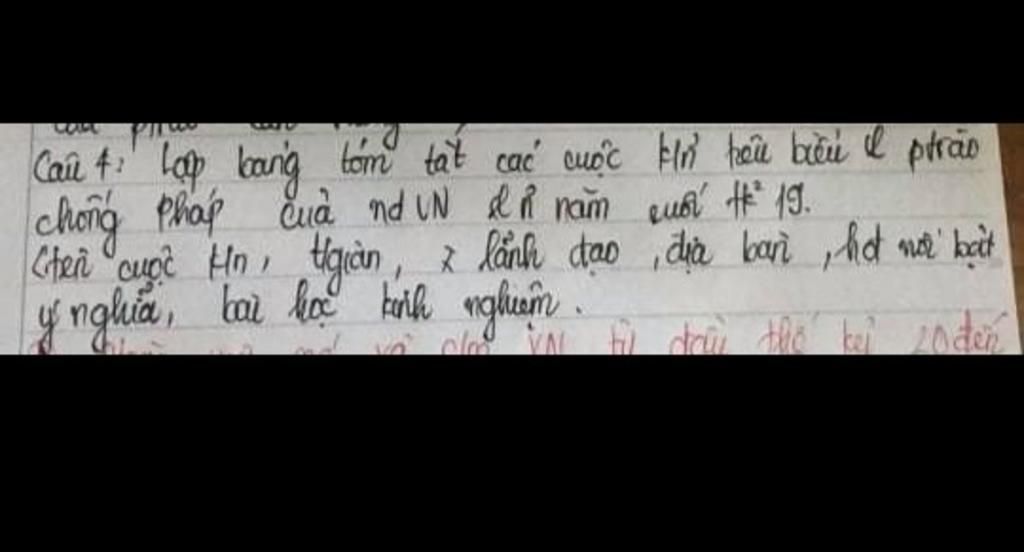 Câu 4: Lập bảng tóm tắt các cuộc k/n tiêu biểu # ptrào
chống Pháp của nd VN # n~ năm cuối tk² 19.
(tên cuộc k/n, tgian, lãnh đạo, địa bàn, hđ nổi bật
ý nghĩa, bài học kinh nghiệm.
VN từ đầu thế kỉ 20 đến